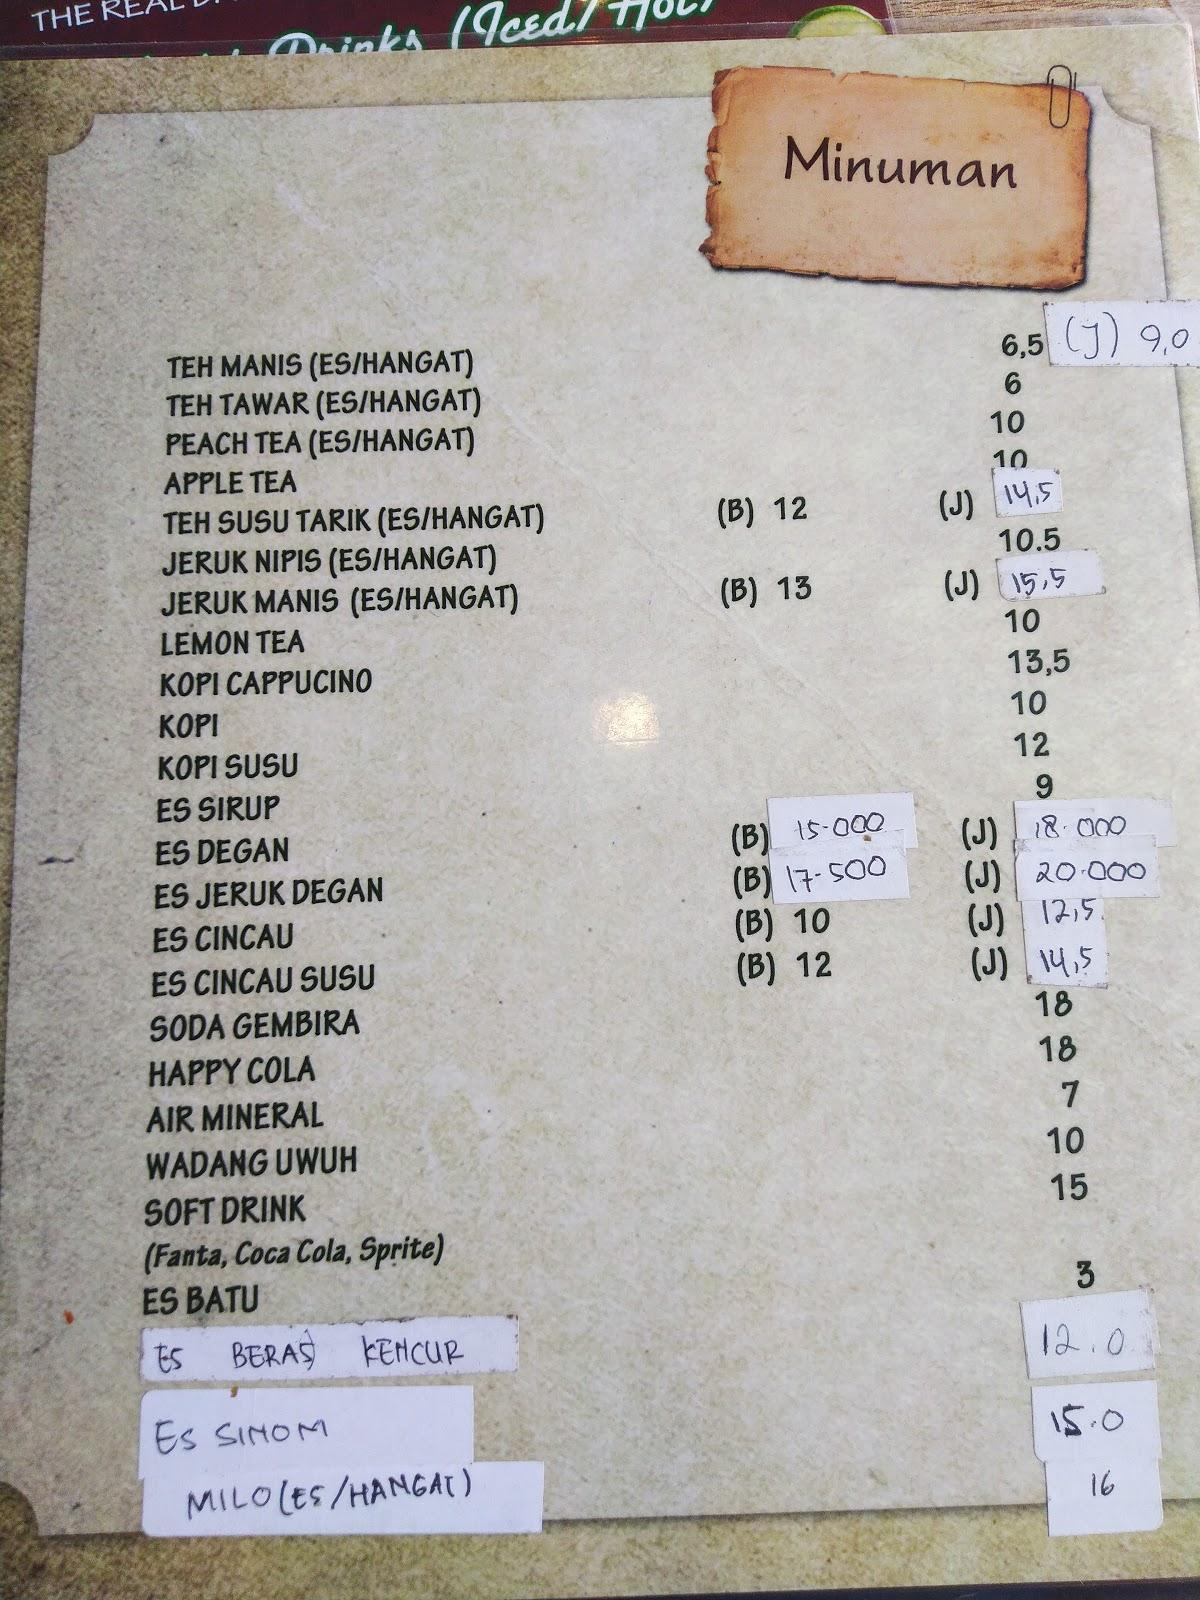 THE REAL
Drinks (Iced/Hot)
Minuman
TEH MANIS (ES/HANGAT) 6,5 (J) 9,0
TEH TAWAR (ES/HANGAT) 6
PEACH TEA (ES/HANGAT) 10
APPLE TEA 10
TEH SUSU TARIK (ES/HANGAT) (B) 12 (J) 14,5
JERUK NIPIS (ES/HANGAT) 10.5
JERUK MANIS (ES/HANGAT) (B) 13 (J) 15,5
LEMON TEA 10
KOPI CAPPUCINO 13,5
KOPI 10
KOPI SUSU 12
ES SIRUP 9
ES DEGAN (B) 15.000 (J) 18.000
ES JERUK DEGAN (B) 17.500 (J) 20.000
ES CINCAU (B) 10 (J) 12,5
ES CINCAU SUSU (B) 12 (J) 14,5
SODA GEMBIRA 18
HAPPY COLA 18
AIR MINERAL 7
WADANG UWUH 10
SOFT DRINK 15
(Fanta, Coca Cola, Sprite)
ES BATU 3
ES BERAS KENCUR 12.0
ES SINOM 15.0
MILO (ES/HANGAT) 16